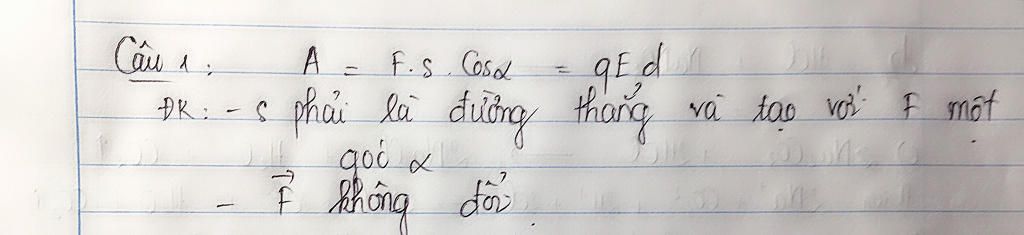 Câu 1: A = F.s.Cosα = qEd
ĐK: - s phải là đường thẳng và tạo với F một
góc α
- F⃗ không đổi.